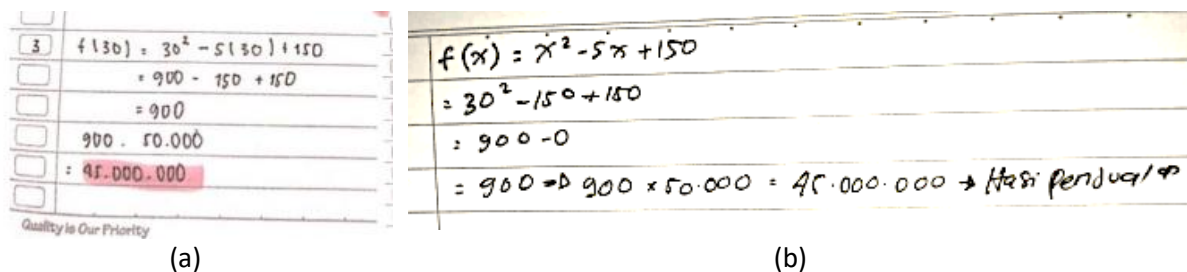 3 f(30) = 30² - 5(30) + 150
= 900 - 150 + 150
= 900
900 . 50.000
= 45.000.000
Quality is Our Priority
(a)
f(x) = x² - 5x + 150
= 30² - 150 + 150
= 900 - 0
= 900 ⇒ 900 x 50.000 = 45.000.000 → Hasi
(b)